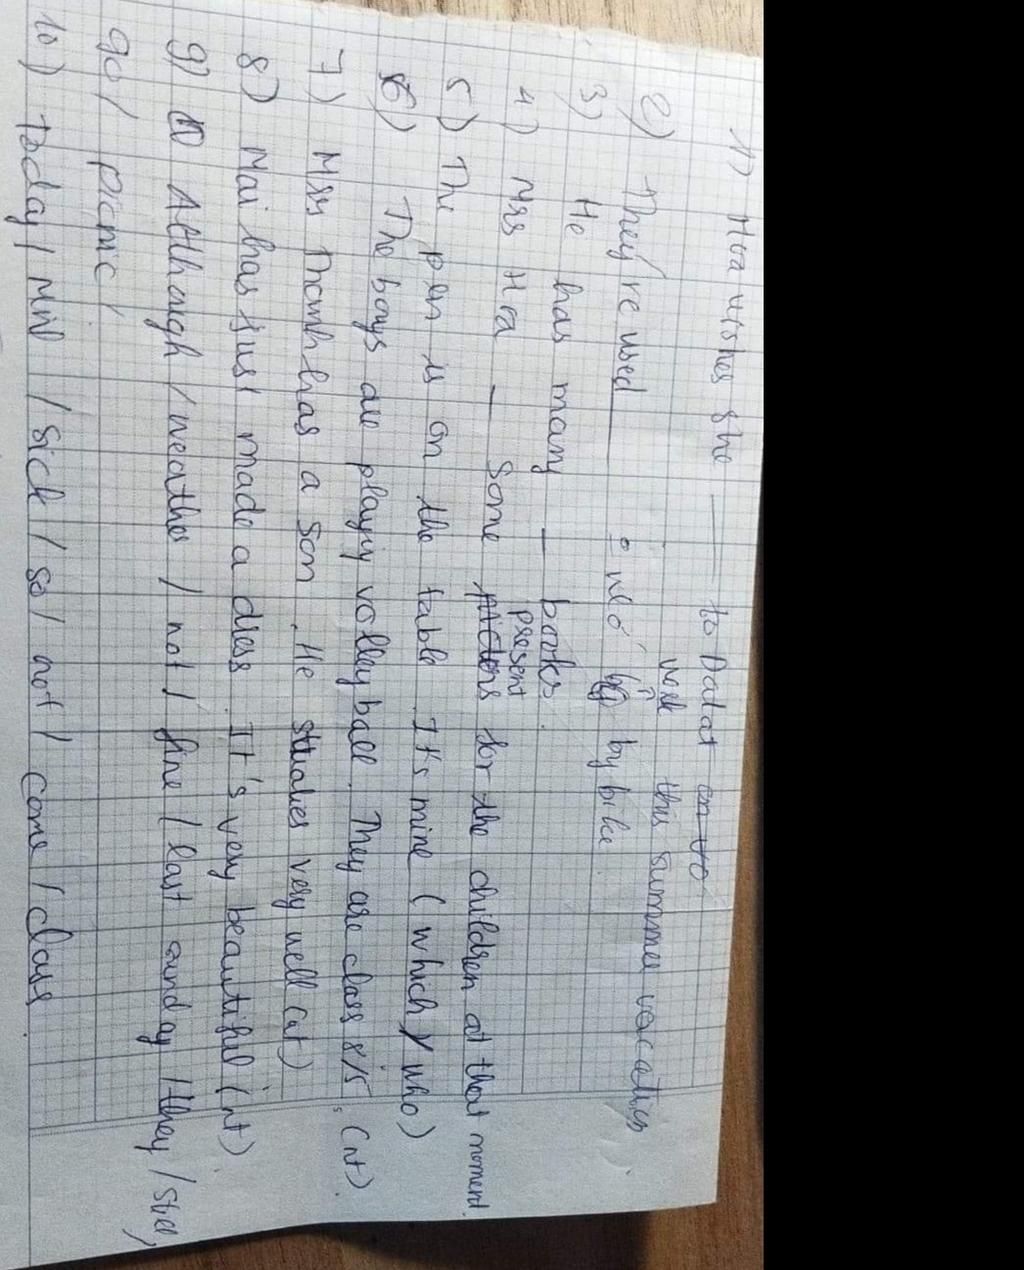 1) Hoa wishes she ___ to Dalat
this summer vacation.
2) They're used ___ work by bike.
3) He has many ___ books.
4) Mrs Hoa ___ some present for the children at that moment.
5) The pen is on the table. It's mine (which / who)
6) The boys are playing volleyball. They are class 8/5. (nt).
7) Mrs Thanh has a son. He studies very well (nt)
8) Mai has just made a dress. It's very beautiful (nt)
9) Although / weather / not / fine / last sunday / they / still /
go / picnic /
10) today / Minh / sick / so / not / come / class.